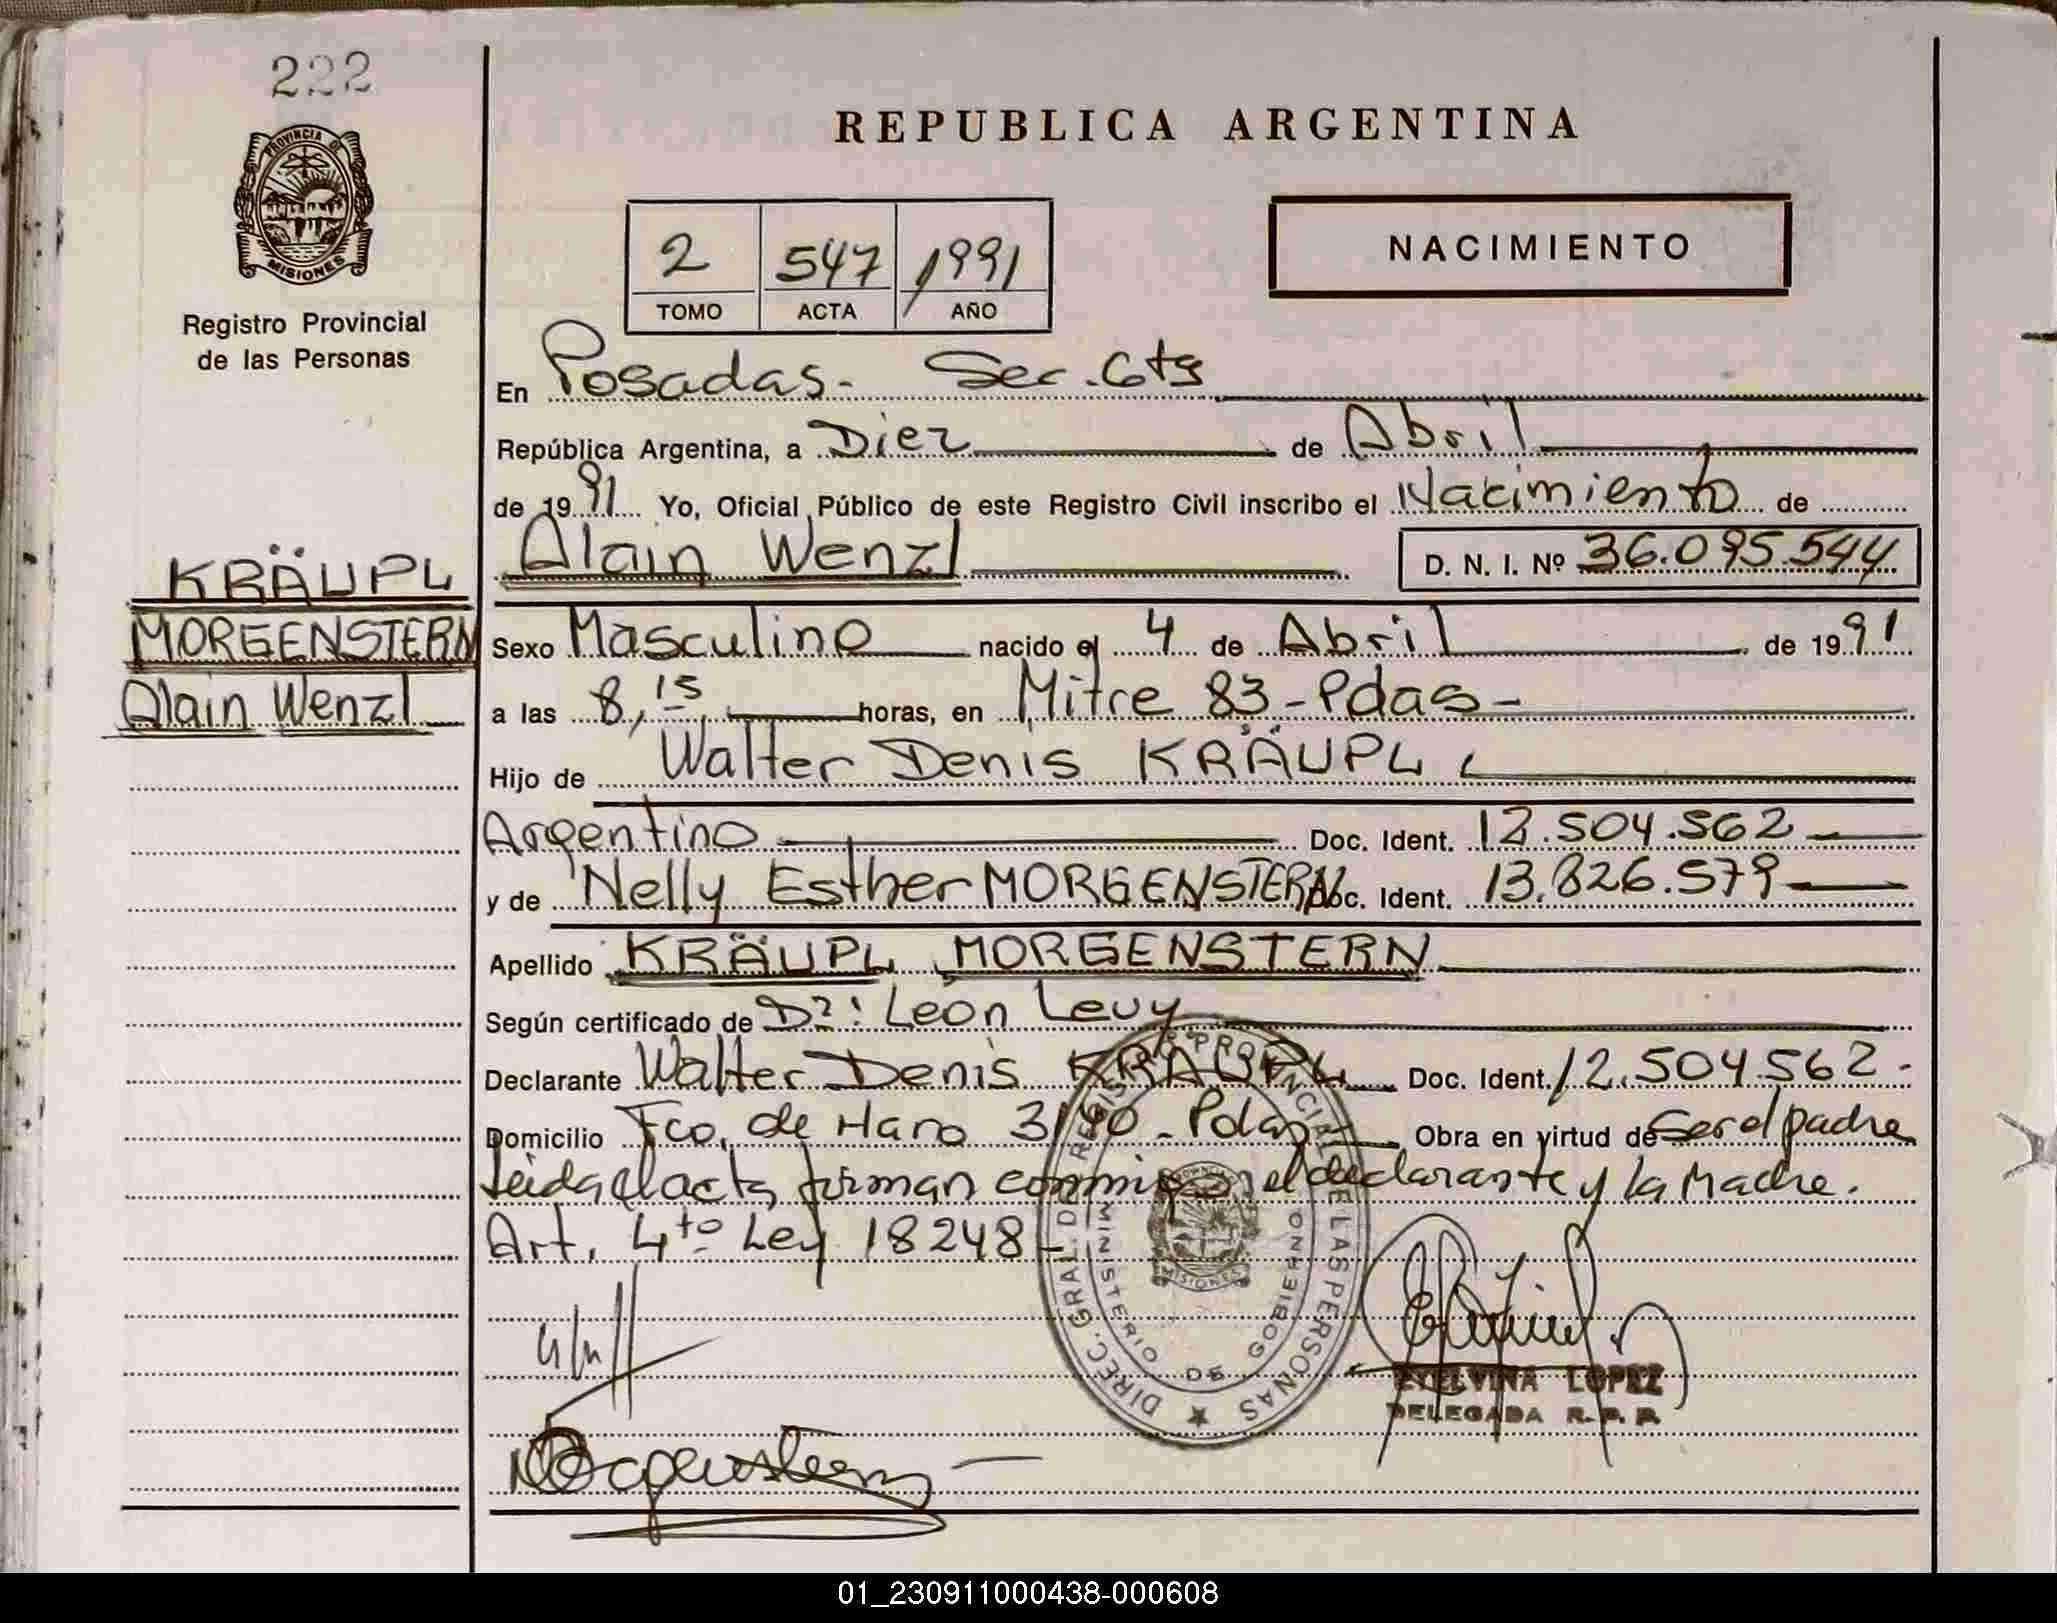 222
PROVINCIA DE
MISIONES
Registro Provincial
de las Personas
KRÄUPL
MORGENSTERN
Alain Wenzl
REPUBLICA ARGENTINA
2 547 1991
TOMO ACTA AÑO
NACIMIENTO
En Posadas. Sec. 6ta
República Argentina, a Diez de Abril
de 1991 Yo, Oficial Público de este Registro Civil inscribo el Nacimiento de
Alain Wenzl D. N. I. Nº 36.095.544
Sexo Masculino nacido el 4 de Abril de 1991
a las 8,15 horas, en Mitre 83 - Pdas -
Hijo de Walter Denis KRÄUPL
Argentino Doc. Ident. 12.504.562
y de Nelly Esther MORGENSTERN Doc. Ident. 13.826.579
Apellido KRÄUPL MORGENSTERN
Según certificado de Dr: León Levy
Declarante Walter Denis KRAUPL Doc. Ident. 12.504.562 -
Domicilio Fco. de Haro 3190 - Pdas Obra en virtud de Ser el padre
Leida el acta firman conmigo el declarante y la Madre.
Art. 4to Ley 18248 -
DIREC. GRAL. DE REGISTRO PROVINCIAL DE LAS PERSONAS
MINISTERIO DE GOBIERNO
MISIONES
Morgenstern
ETELVINA LOPEZ
DELEGADA R. P. P.
01_230911000438-000608